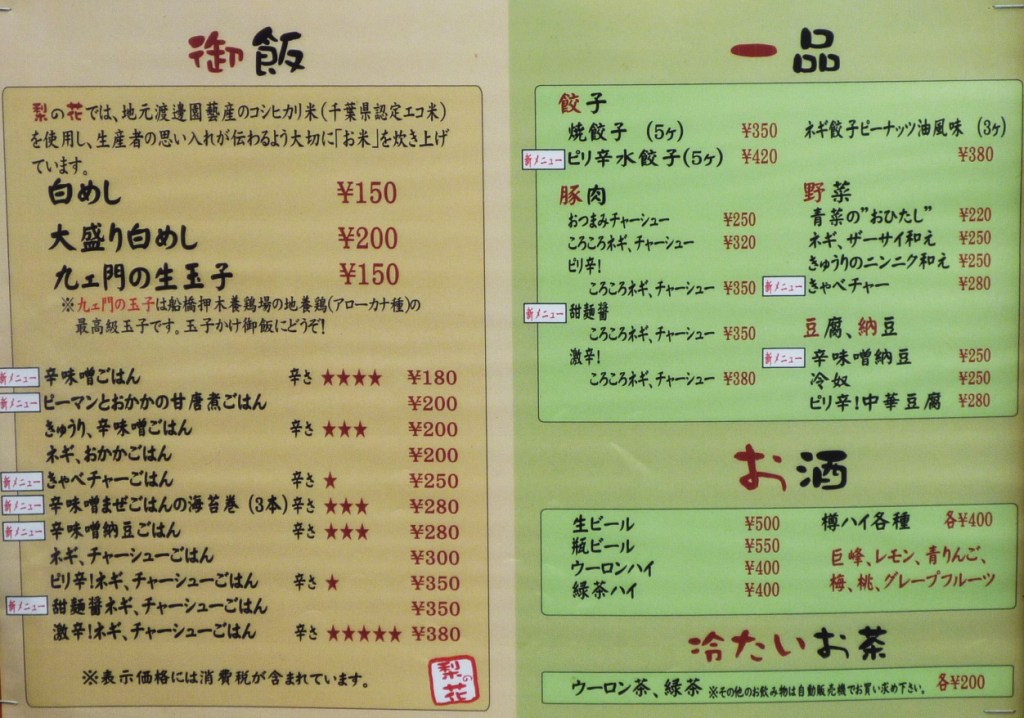 御飯
梨の花では、地元渡邉園藝産のコシヒカリ米(千葉県認定エコ米)
を使用し、生産者の思い入れが伝わるよう大切に「お米」を炊き上げ
ています。
白めし ¥150
大盛り白めし ¥200
九ェ門の生玉子 ¥150
※九ェ門の玉子は船橋押木養鶏場の地養鶏(アローカナ種)の
最高級玉子です。玉子かけ御飯にどうぞ!
新メニュー 辛味噌ごはん 辛さ ★★★★ ¥180
新メニュー ピーマンとおかかの甘唐煮ごはん ¥200
きゅうり、辛味噌ごはん 辛さ ★★★ ¥200
ネギ、おかかごはん ¥200
新メニュー きゃべチャーごはん 辛さ ★ ¥250
新メニュー 辛味噌まぜごはんの海苔巻 (3本) 辛さ ★★★ ¥280
新メニュー 辛味噌納豆ごはん 辛さ ★★★ ¥280
ネギ、チャーシューごはん ¥300
ピリ辛!ネギ、チャーシューごはん 辛さ ★ ¥350
新メニュー 甜麺醤ネギ、チャーシューごはん ¥350
激辛!ネギ、チャーシューごはん 辛さ ★★★★★ ¥380
※表示価格には消費税が含まれています。
梨の花
一品
餃子
焼餃子 (5ヶ) ¥350
新メニュー ピリ辛水餃子(5ヶ) ¥420
ネギ餃子ピーナッツ油風味 (3ヶ)
¥380
豚肉
おつまみチャーシュー ¥250
ころころネギ、チャーシュー ¥320
ピリ辛!
ころころネギ、チャーシュー ¥350
新メニュー 甜麺醤
ころころネギ、チャーシュー ¥350
激辛!
ころころネギ、チャーシュー ¥380
野菜
青菜の"おひたし" ¥220
ネギ、ザーサイ和え ¥250
きゅうりのニンニク和え ¥250
新メニュー きゃべチャー ¥280
豆腐、納豆
新メニュー 辛味噌納豆 ¥250
冷奴 ¥250
ピリ辛!中華豆腐 ¥280
お酒
生ビール ¥500
瓶ビール ¥550
ウーロンハイ ¥400
緑茶ハイ ¥400
樽ハイ各種 各¥400
巨峰、レモン、青りんご、
梅、桃、グレープフルーツ
冷たいお茶
ウーロン茶、緑茶 ※その他のお飲み物は自動販売機でお買い求め下さい。 各¥200